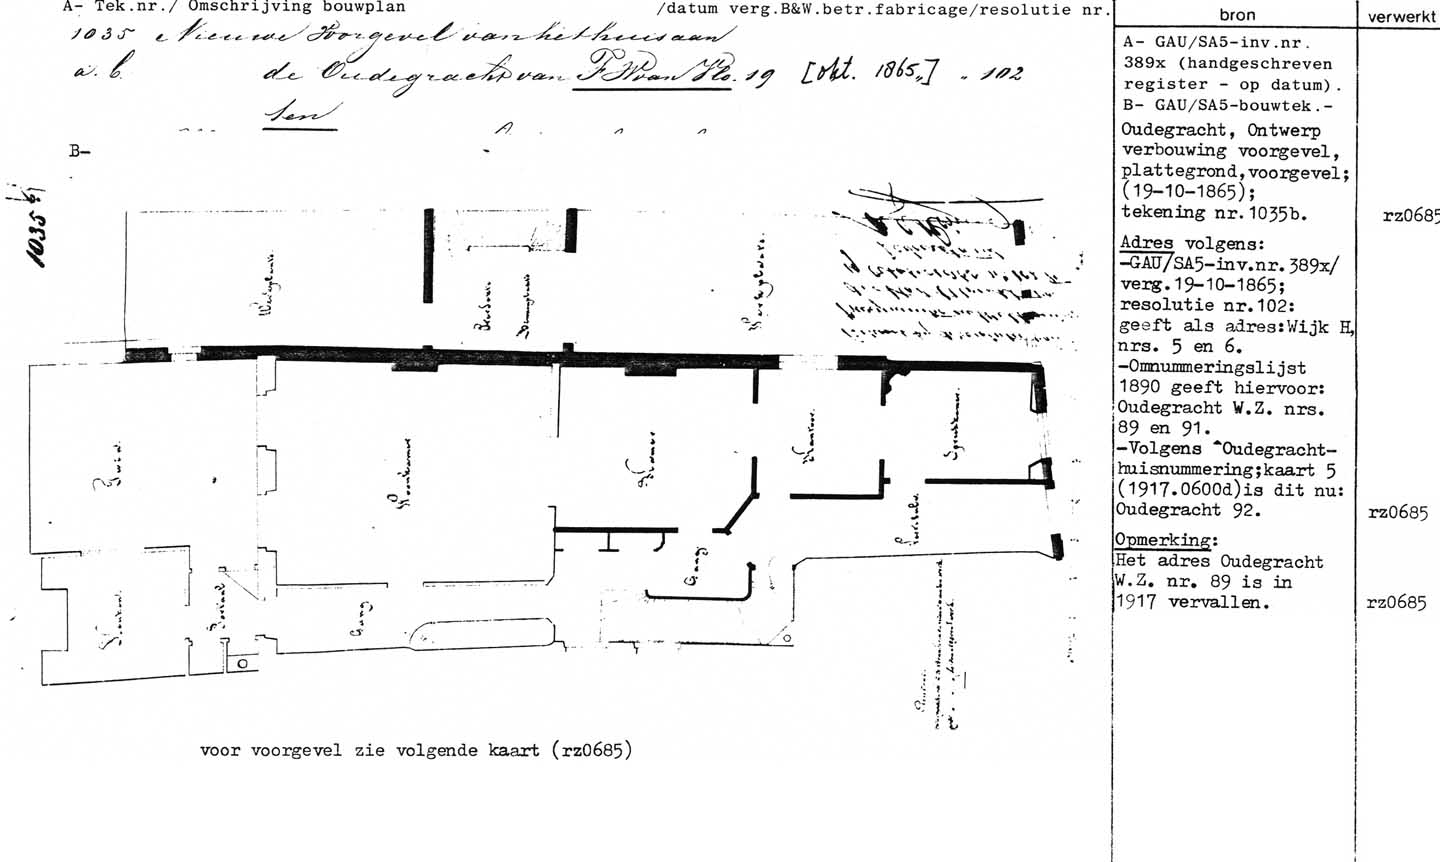 A- Tek.nr./ Omschrijving bouwplan /datum verg.B&W.betr.fabricage/resolutie nr.
1035 Nieuwe Voorgevel van het huis aan
a. b. de Oudegracht van F W van Vlo. 19 [okt. 1865,] „ 102
ten
B-
1035
Werkplaats
Werkplaats
Tuin
Woonkamer
Kamer
Kantoor
Spreekkamer
Gang
Gang
Keuken
Portaal
voor voorgevel zie volgende kaart (rz0685)
bron
A- GAU/SA5-inv.nr.
389x (handgeschreven
register - op datum).
B- GAU/SA5-bouwtek.-
Oudegracht, Ontwerp
verbouwing voorgevel,
plattegrond,voorgevel;
(19-10-1865);
tekening nr.1035b.
Adres volgens:
-GAU/SA5-inv.nr.389x/
verg.19-10-1865;
resolutie nr.102:
geeft als adres:Wijk H,
nrs. 5 en 6.
-Omnummeringslijst
1890 geeft hiervoor:
Oudegracht W.Z. nrs.
89 en 91.
-Volgens ^Oudegracht-
huisnummering;kaart 5
(1917.0600d)is dit nu:
Oudegracht 92.
Opmerking:
Het adres Oudegracht
W.Z. nr. 89 is in
1917 vervallen.
verwerkt
rz0685
rz0685
rz0685